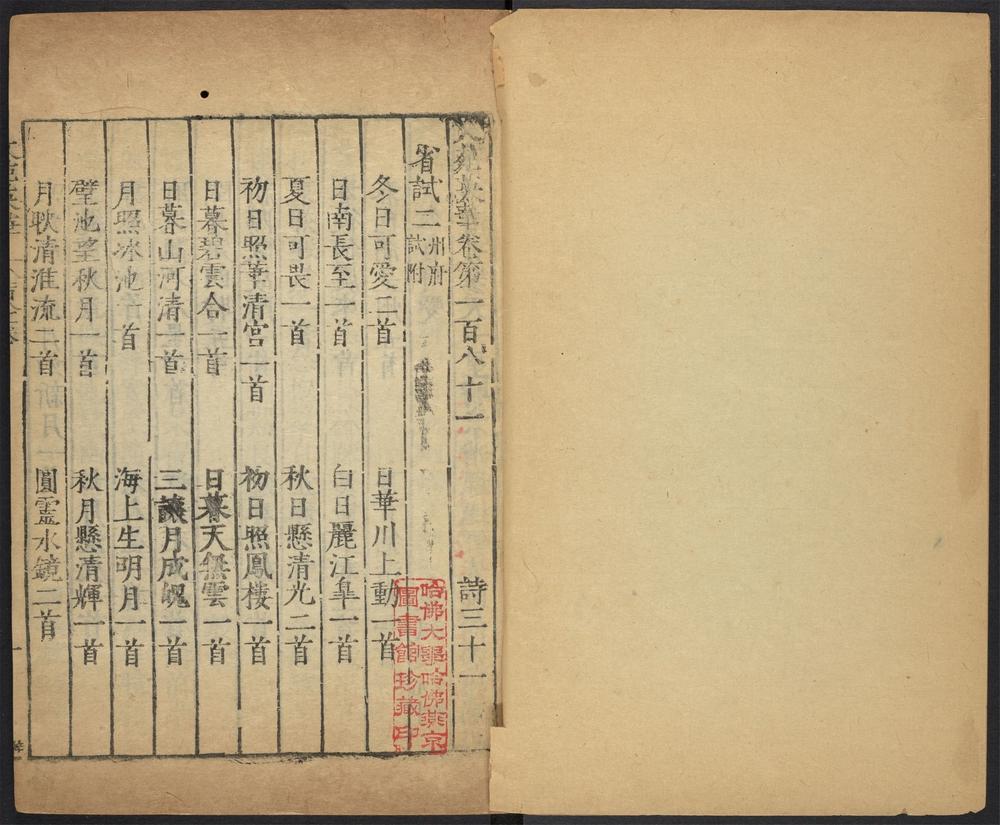 文苑英華卷第一百八十一 詩三十一
省試二 州府試附
冬日可愛二首 日華川上動一首
日南長至一首 白日麗江皐一首
夏日可畏一首 秋日懸清光二首
初日照華清宮一首 初日照鳳樓一首
日暮碧雲合一首 日暮天無雲一首
日暮山河清一首 三讓月成魄一首
月照冰池 首 海上生明月一首
璧池望秋月一首 秋月懸清輝一首
月映清淮流二首 圓靈水鏡二首
哈佛大學哈佛燕京
圖書館珍藏印